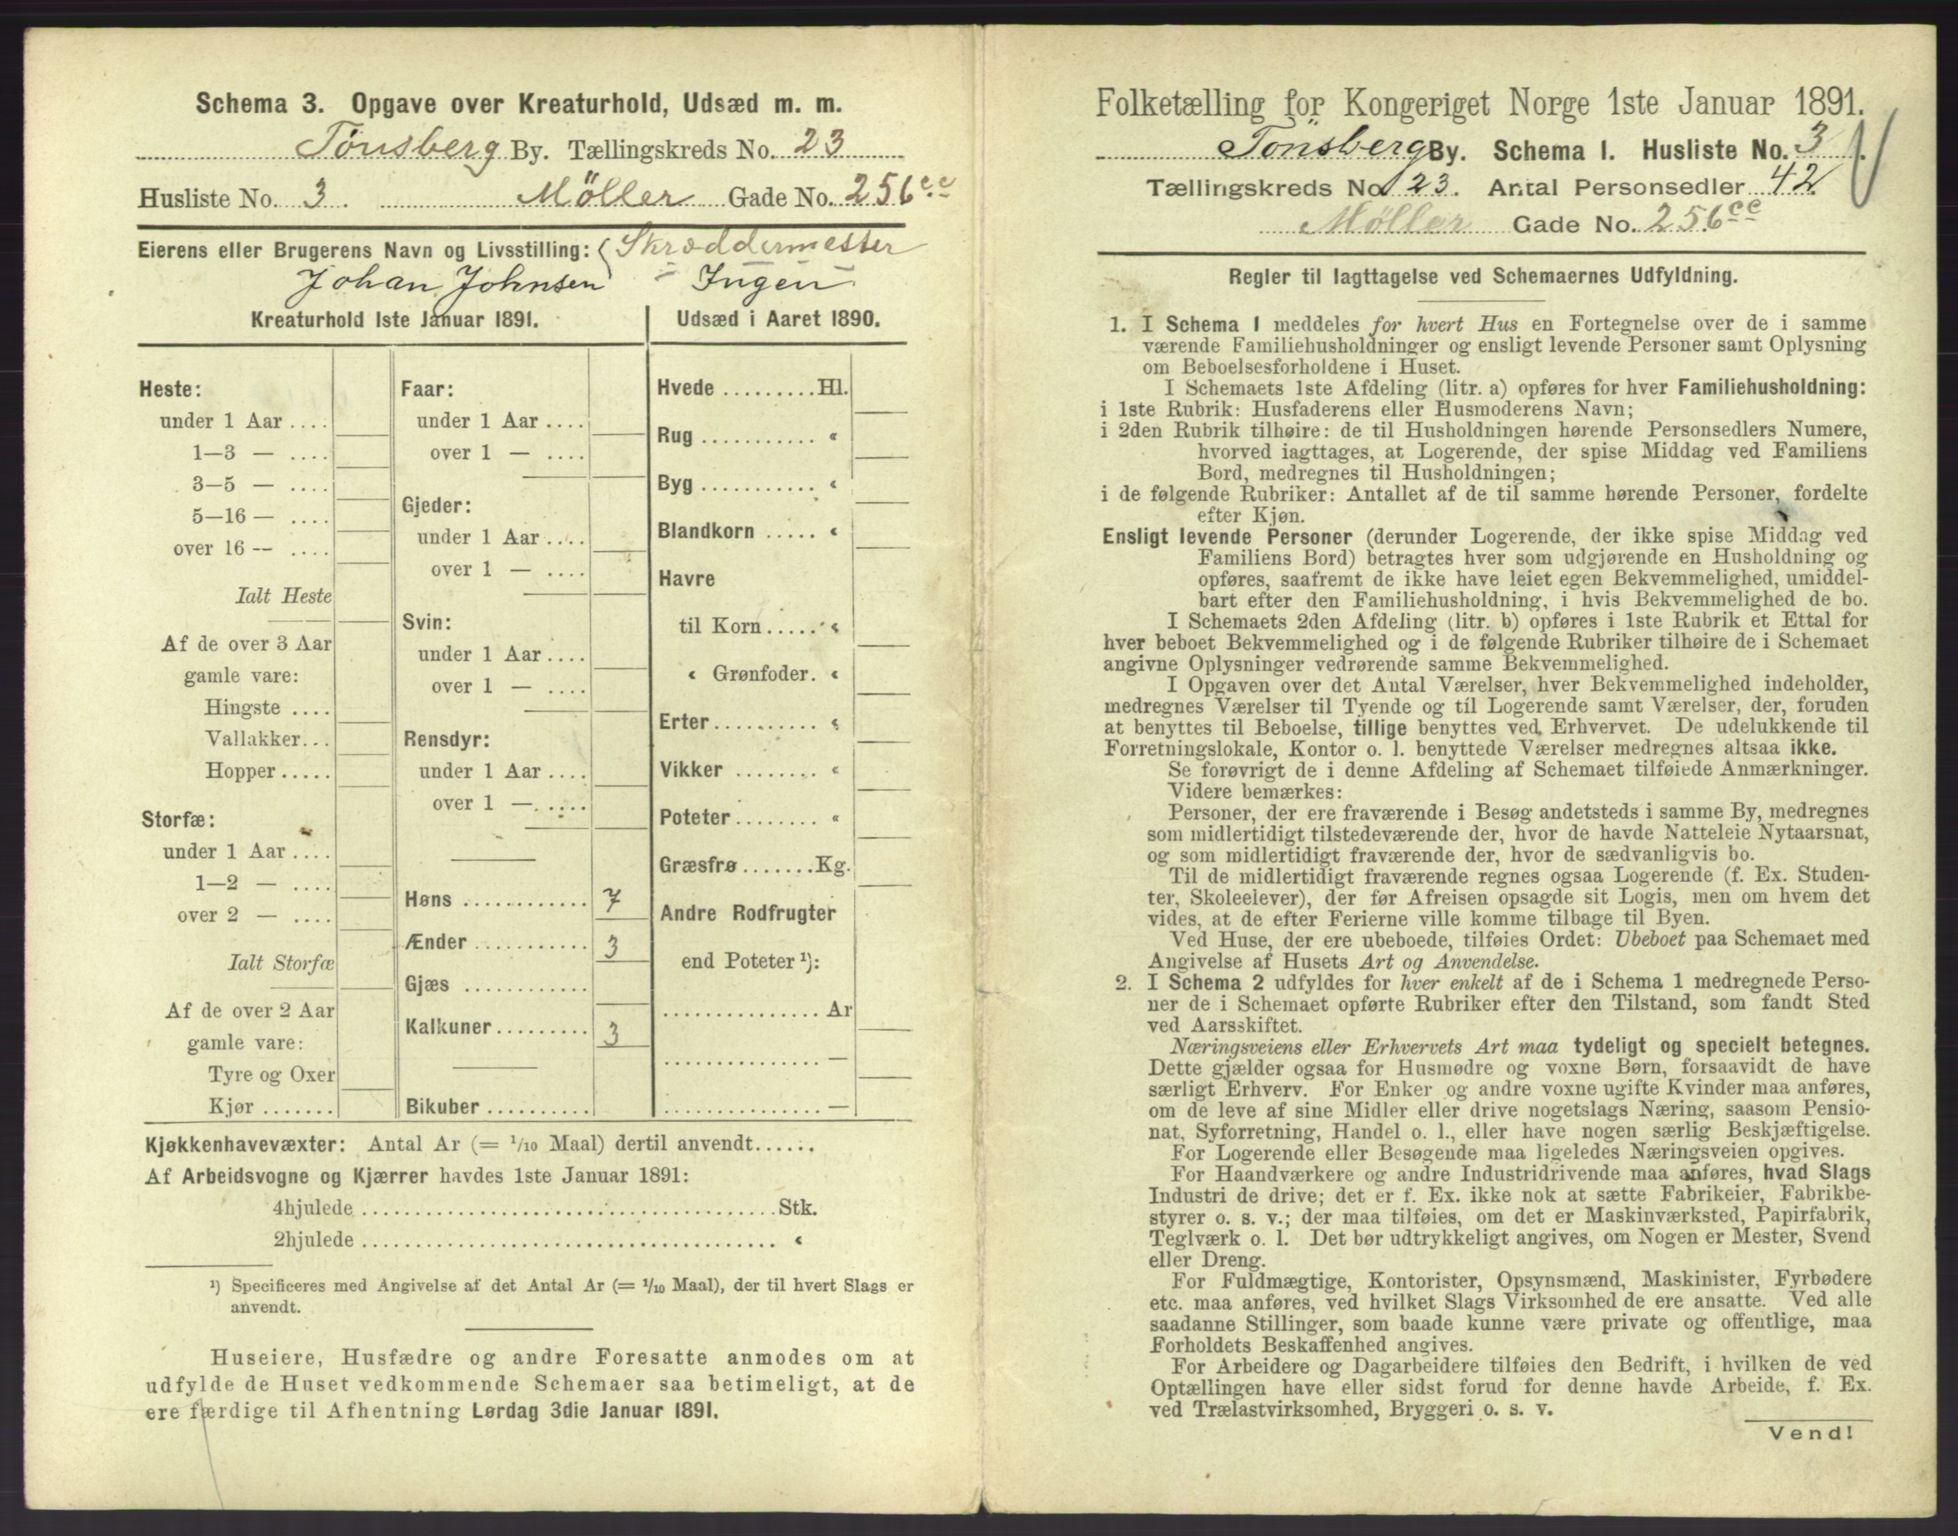 Schema 3. Opgave over Kreaturhold, Udsæd m. m.
Tønsberg By. Tællingskreds No. 23
Husliste No. 3. Möller Gade No. 256 cc
Eierens eller Brugerens Navn og Livsstilling: Skræddermester
Johan Johnsen Ingen
Kreaturhold 1ste Januar 1891.
Udsæd i Aaret 1890.
Heste:
under 1 Aar ....
1—3 — ....
3—5 — ....
5—16 — ....
over 16 — ....
Ialt Heste
Af de over 3 Aar
gamle vare:
Hingste ....
Vallakker...
Hopper.....
Storfæ:
under 1 Aar ....
1—2 — ....
over 2 — ....
Ialt Storfæ
Af de over 2 Aar
gamle vare:
Tyre og Oxer
Kjør.......
Faar:
under 1 Aar ....
over 1 — ....
Gjeder:
under 1 Aar ....
over 1 — ....
Svin:
under 1 Aar ....
over 1 — ....
Rensdyr:
under 1 Aar ....
over 1 — ....
Høns ............ 7
Ænder ........... 3
Gjæs ............
Kalkuner......... 3
Bikuber..........
Hvede .........Hl.
Rug ........... «
Byg ........... «
Blandkorn ..... «
Havre
til Korn...... «
« Grønfoder. «
Erter.......... «
Vikker ........ «
Poteter........ «
Græsfrø .......Kg.
Andre Rodfrugter
end Poteter ¹):
............... Ar
............... —
............... —
Kjøkkenhavevæxter: Antal Ar (= 1/10 Maal) dertil anvendt......
Af Arbeidsvogne og Kjærrer havdes 1ste Januar 1891:
4hjulede ....................................... Stk.
2hjulede ....................................... «
¹) Specificeres med Angivelse af det Antal Ar (= 1/10 Maal), der til hvert Slags er
anvendt.
Huseiere, Husfædre og andre Foresatte anmodes om at
udfylde de Huset vedkommende Schemaer saa betimeligt, at de
ere færdige til Afhentning Lørdag 3die Januar 1891.
Folketælling for Kongeriget Norge 1ste Januar 1891.
Tönsberg By. Schema 1. Husliste No. 3.
Tællingskreds No. 23. Antal Personsedler 42.
Möller Gade No. 256 cc
Regler til Iagttagelse ved Schemaernes Udfyldning.
1. I Schema 1 meddeles for hvert Hus en Fortegnelse over de i samme
værende Familiehusholdninger og ensligt levende Personer samt Oplysning
om Beboelsesforholdene i Huset.
I Schemaets 1ste Afdeling (litr. a) opføres for hver Familiehusholdning:
i 1ste Rubrik: Husfaderens eller Husmoderens Navn;
i 2den Rubrik tilhøire: de til Husholdningen hørende Personsedlers Numere,
hvorved iagttages, at Logerende, der spise Middag ved Familiens
Bord, medregnes til Husholdningen;
i de følgende Rubriker: Antallet af de til samme hørende Personer, fordelte
efter Kjøn.
Ensligt levende Personer (derunder Logerende, der ikke spise Middag ved
Familiens Bord) betragtes hver som udgjørende en Husholdning og
opføres, saafremt de ikke have leiet egen Bekvemmelighed, umiddel-
bart efter den Familiehusholdning, i hvis Bekvemmelighed de bo.
I Schemaets 2den Afdeling (litr. b) opføres i 1ste Rubrik et Ettal for
hver beboet Bekvemmelighed og i de følgende Rubriker tilhøire de i Schemaet
angivne Oplysninger vedrørende samme Bekvemmelighed.
I Opgaven over det Antal Værelser, hver Bekvemmelighed indeholder,
medregnes Værelser til Tyende og til Logerende samt Værelser, der, foruden
at benyttes til Beboelse, tillige benyttes ved Erhvervet. De udelukkende til
Forretningslokale, Kontor o. l. benyttede Værelser medregnes altsaa ikke.
Se forøvrigt de i denne Afdeling af Schemaet tilføiede Anmærkninger.
Videre bemærkes:
Personer, der ere fraværende i Besøg andetsteds i samme By, medregnes
som midlertidigt tilstedeværende der, hvor de havde Natteleie Nytaarsnat,
og som midlertidigt fraværende der, hvor de sædvanligvis bo.
Til de midlertidigt fraværende regnes ogsaa Logerende (f. Ex. Studen-
ter, Skoleelever), der før Afreisen opsagde sit Logis, men om hvem det
vides, at de efter Ferierne ville komme tilbage til Byen.
Ved Huse, der ere ubeboede, tilføies Ordet: Ubeboet paa Schemaet med
Angivelse af Husets Art og Anvendelse.
2. I Schema 2 udfyldes for hver enkelt af de i Schema 1 medregnede Perso-
ner de i Schemaet opførte Rubriker efter den Tilstand, som fandt Sted
ved Aarsskiftet.
Næringsveiens eller Erhvervets Art maa tydeligt og specielt betegnes.
Dette gjælder ogsaa for Husmødre og voxne Børn, forsaavidt de have
særligt Erhverv. For Enker og andre voxne ugifte Kvinder maa anføres,
om de leve af sine Midler eller drive nogetslags Næring, saasom Pensio-
nat, Syforretning, Handel o. l., eller have nogen særlig Beskjæftigelse.
For Logerende eller Besøgende maa ligeledes Næringsveien opgives.
For Haandværkere og andre Industridrivende maa anføres, hvad Slags
Industri de drive; det er f. Ex. ikke nok at sætte Fabrikeier, Fabrikbe-
styrer o. s. v.; der maa tilføies, om det er Maskinværksted, Papirfabrik,
Teglværk o. l. Det bør udtrykkeligt angives, om Nogen er Mester, Svend
eller Dreng.
For Fuldmægtige, Kontorister, Opsynsmænd, Maskinister, Fyrbødere
etc. maa anføres, ved hvilket Slags Virksomhed de ere ansatte. Ved alle
saadanne Stillinger, som baade kunne være private og offentlige, maa
Forholdets Beskaffenhed angives.
For Arbeidere og Dagarbeidere tilføies den Bedrift, i hvilken de ved
Optællingen have eller sidst forud for denne havde Arbeide, f. Ex.
ved Trælastvirksomhed, Bryggeri o. s. v.
Vend!